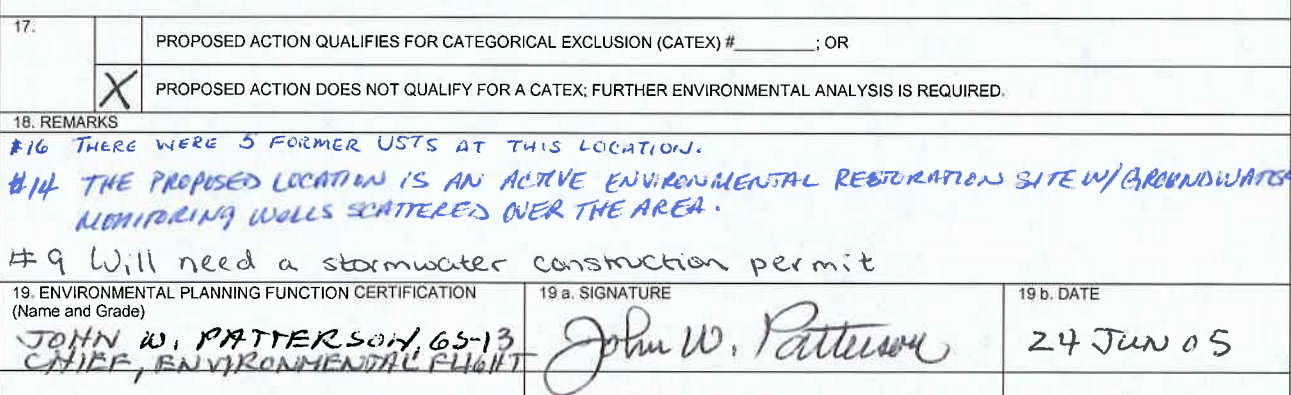 17.
PROPOSED ACTION QUALIFIES FOR CATEGORICAL EXCLUSION (CATEX) #________; OR
X PROPOSED ACTION DOES NOT QUALIFY FOR A CATEX; FURTHER ENVIRONMENTAL ANALYSIS IS REQUIRED.
18. REMARKS
#16 THERE WERE 5 FORMER USTS AT THIS LOCATION.
#14 THE PROPOSED LOCATION IS AN ACTIVE ENVIRONMENTAL RESTORATION SITE W/ GROUNDWATER
MONITORING WELLS SCATTERED OVER THE AREA.
#9 Will need a stormwater construction permit
19. ENVIRONMENTAL PLANNING FUNCTION CERTIFICATION 19 a. SIGNATURE 19 b. DATE
(Name and Grade)
JOHN W. PATTERSON, GS-13 John W. Patterson 24 JUN 05
CHIEF, ENVIRONMENTAL FLIGHT